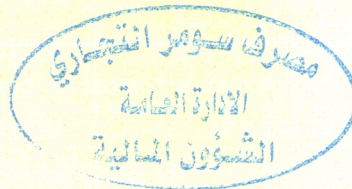 مصرف سومر التجاري
الادارة العامة
الشؤون المالية